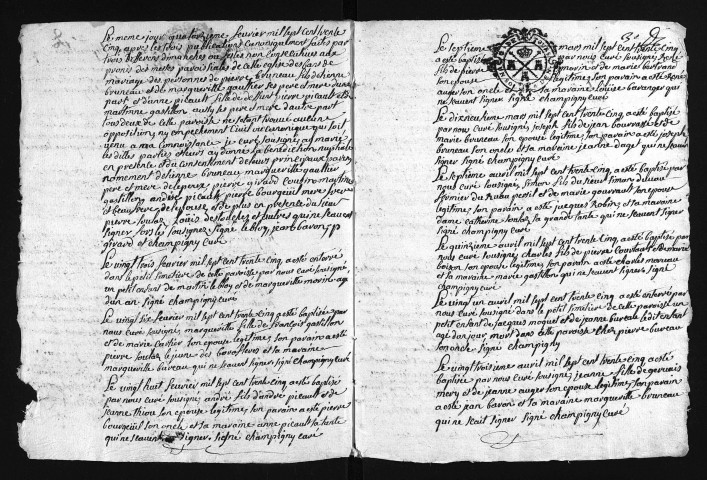 Le meme jour quatorzieme fevrier mil sept cent trente
cinq, apres les trois publications canoniquement faites par
trois differens dimanches ou festes non contestatives aux
prosnes des messes paroissiale de cette eglise des bans de
mariage des personnes de pierre bruneau fils d'etienne
bruneau et de margueritte gauthier ses pere et mere d'une
part et d'anne picault fille de deffunt pierre picault et de
martinne gastillon aussy ses pere et mere d'autre part
tous deux de cette paroisse ne s'etant trouvé aucune
opposition, ny empeschement civil ou canonique qui soit
venu a ma connoissance je curé soussigné ay marié
les dittes parties et leurs ay donné la benediction nuptiale
en presence et du consentement de leurs principaux parens
nommement d'etienne bruneau margueritte gauthier
pere et mere de lepoux, pierre girard cousin martinne
gastillon andré picault pierre bourgeuil mere frere
et beau frere de lepouse, et de plus en presence du sieur
pierre soulas louis et autres qui ne scavent
signer fors les soussignez signé lebloy jean baron p
girard et champigny curé
Le vingt trois fevrier mil sept cent trente cinq a esté enterré
dans le petit cimetiere de cette paroisse par nous curé soussigné
un petit enfant de martin le moy et de margueritte morin agé
d'un an signé champigny curé
Le vingt six fevrier mil sept cent trente cinq a esté baptisé par
nous curé soussigné margueritte fille de françois gastillon
et de marie cartier son epouse legitime, son parain a esté
pierre soulas le jeune des et sa maraine
margueritte bureau qui ne scavent signer signé champigny curé
Le vingt huit fevrier mil sept cent trente cinq a esté baptisé
par nous curé soussigné andré fils d'andré picault et de
jeanne thion son epouse legitime son parain a esté pierre
bourgeuil son oncle et sa maraine anne picault sa tante
qui ne scavent signer signé champigny curé
3e
Le septieme mars mil sept cent trente cinq
a esté baptisé par nous curé soussigné
fils de pierre et de marie
epouse legitime, son parain a esté
auger son oncle et sa maraine louise baranger qui
ne scavent signer signé champigny curé
Le dixneuvieme mars mil sept cent trente cinq a esté baptisé
par nous curé soussigné joseph fils de jean bourrassé et de
marie bruneau son epouse legitime, son parain a esté joseph
bruneau son oncle et sa maraine jeanne daget qui ne scavent
signer signé champigny curé
Le septieme avril mil sept cent trente cinq a esté baptisé par
nous curé soussigné, simon fils du sieur simon
fermier du et de marie gourrault son epouse
legitime, son parain a esté jacques robin et sa maraine
dame catherine soulas sa grande tante qui ne scavent signer
signé champigny curé
Le quinzieme avril mil sept cent trente cinq, a esté baptisé par
nous curé soussigné charles fils de pierre courtault et de marie
boizon son epouse legitime, son parain a esté charles moreau
et sa maraine marie gastillon qui ne scavent signer signé
champigny curé
Le vingt un avril mil sept cent trente cinq a esté enterré par
nous curé soussigné dans le petit cimetiere de cette paroisse un
petit enfant de jacques moquet et de jeanne bureau ledit enfant
agé d'un jour, mort dans cette paroisse chez pierre bureau
son oncle signé champigny
Le vingt troisieme avril mil sept cent trente cinq a esté
baptisé par nous curé soussigné jeanne fille de gervais
mery et de jeanne auger son epouse legitime, son parain
a esté jean baron et sa maraine margueritte bruneau
qui ne scait signer signé champigny curé